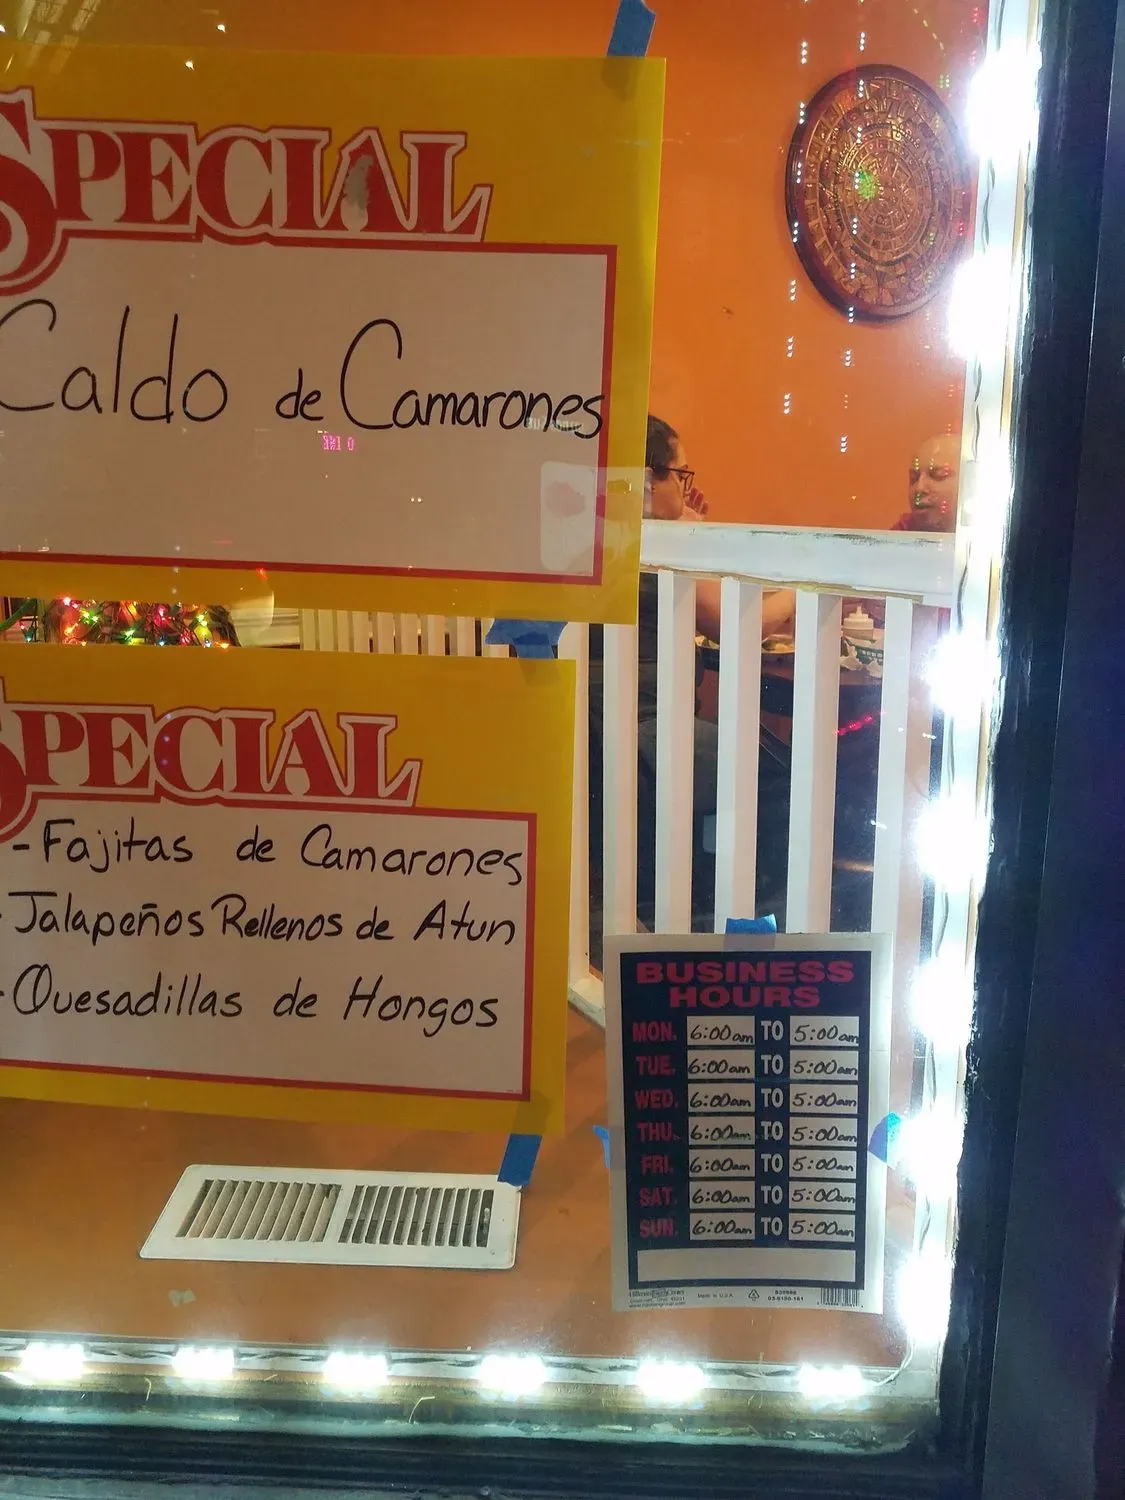 SPECIAL
Caldo de Camarones
SPECIAL
- Fajitas de Camarones
- Jalapeños Rellenos de Atun
- Quesadillas de Hongos
BUSINESS
HOURS
MON. 6:00am TO 5:00am
TUE. 6:00am TO 5:00am
WED. 6:00am TO 5:00am
THU. 6:00am TO 5:00am
FRI. 6:00am TO 5:00am
SAT. 6:00am TO 5:00am
SUN. 6:00am TO 5:00am
Made in U.S.A.